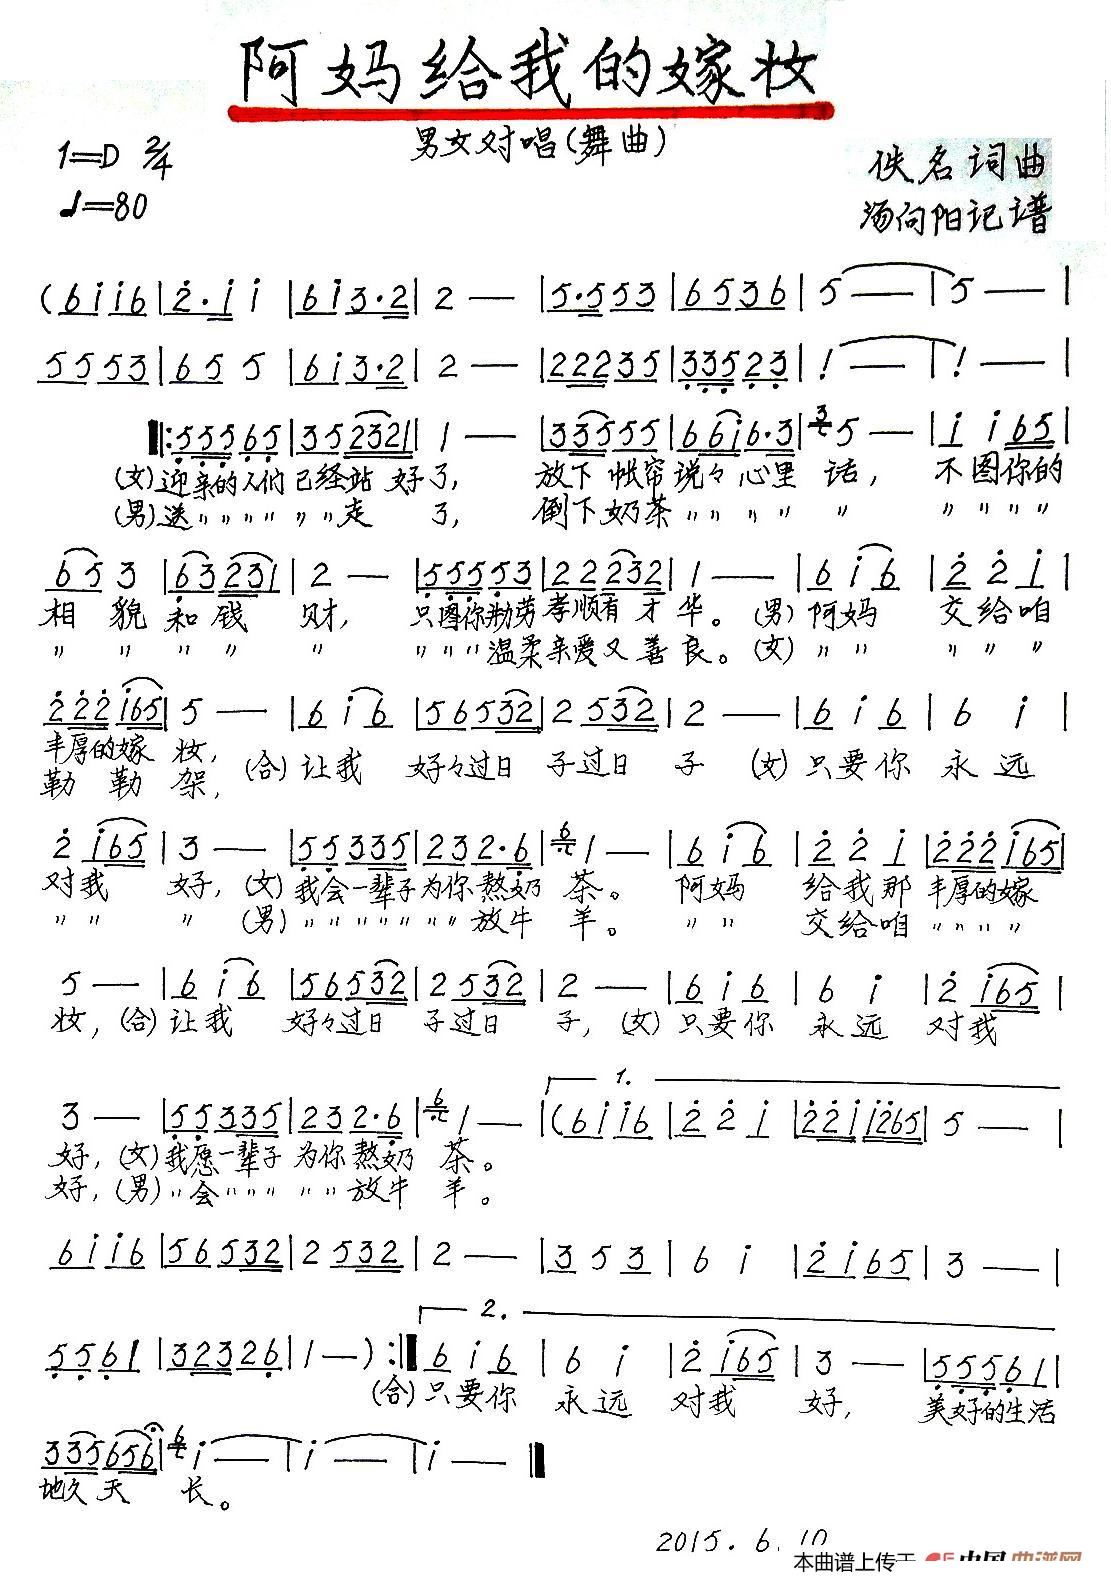 阿妈给我的嫁妆
男女对唱(舞曲)
1=D 2/4
♩=80
佚名词曲
汤向阳记谱
(6i i6 | 2·i i | 6i 3·2 | 2 — | 5·5 53 | 65 36 | 5 — | 5 — |
55 53 | 65 5 | 6i 3·2 | 2 — | 222 35 | 335 23 | 1 — | 1 — |
|: 555 65 | 35 2321 | 1 — | 335 55 | 66i 6·3 | 5 — | i i 65 |
(女)迎亲的人们 已经站 好了, 放下 帐帘说々 心里 话, 不图你的
(男)送 〃 〃 〃 〃 〃 〃 走 了, 倒下 奶茶 〃 〃 〃 〃 〃 〃 〃 〃 〃
65 3 | 63 231 | 2 — | 555 53 | 22 232 | 1 — | 6 i 6 | 2 2 i |
相 貌 和 钱 财, 只图你勤劳 孝顺有 才 华。 (男) 阿妈 交给咱
〃 〃 〃 〃 〃 〃 〃 〃 温柔 亲爱又 善 良。 (女) 〃 〃 〃 〃 〃
222 i65 | 5 — | 6 i 6 | 56 532 | 2 532 | 2 — | 6 i 6 | 6 i |
丰厚的嫁 妆, (合) 让我 好々过日 子过日 子 (女) 只要你 永 远
勒 勒 架,
2 i65 | 3 — | 55 335 | 23 2·6 | 1 — | 6 i 6 | 2 2 i | 222 i65 |
对我 好, (女) 我会一辈子 为你 熬奶 茶。 阿妈 给我那 丰厚的嫁
〃 〃 〃 (男) 〃 〃 〃 〃 〃 〃 〃 放牛 羊。 〃 〃 交给咱 〃 〃 〃 〃
5 — | 6 i 6 | 56 532 | 2 532 | 2 — | 6 i 6 | 6 i | 2 i65 |
妆, (合) 让我 好々过日 子过日 子, (女) 只要你 永 远 对我
1.
3 — | 55 335 | 23 2·6 | 1 — | (6i i6 | 2 2 i | 22i i265 | 5 — |
好, (女) 我愿一辈子 为你 熬奶 茶。
好, (男) 〃 会 〃 〃 〃 〃 〃 放牛 羊。
6i i6 | 56 532 | 2 532 | 2 — | 3 5 3 | 6 i | 2i 65 | 3 — |
2.
55 61 | 323 26 | 1 — ) :| 6 i 6 | 6 i | 2 i65 | 3 — | 555 61 |
(合) 只要你 永 远 对我 好, 美好的生活
335 656 | i — | i — | i — ‖
地久 天 长。
2015.6.10
本曲谱上传于
中国曲谱网